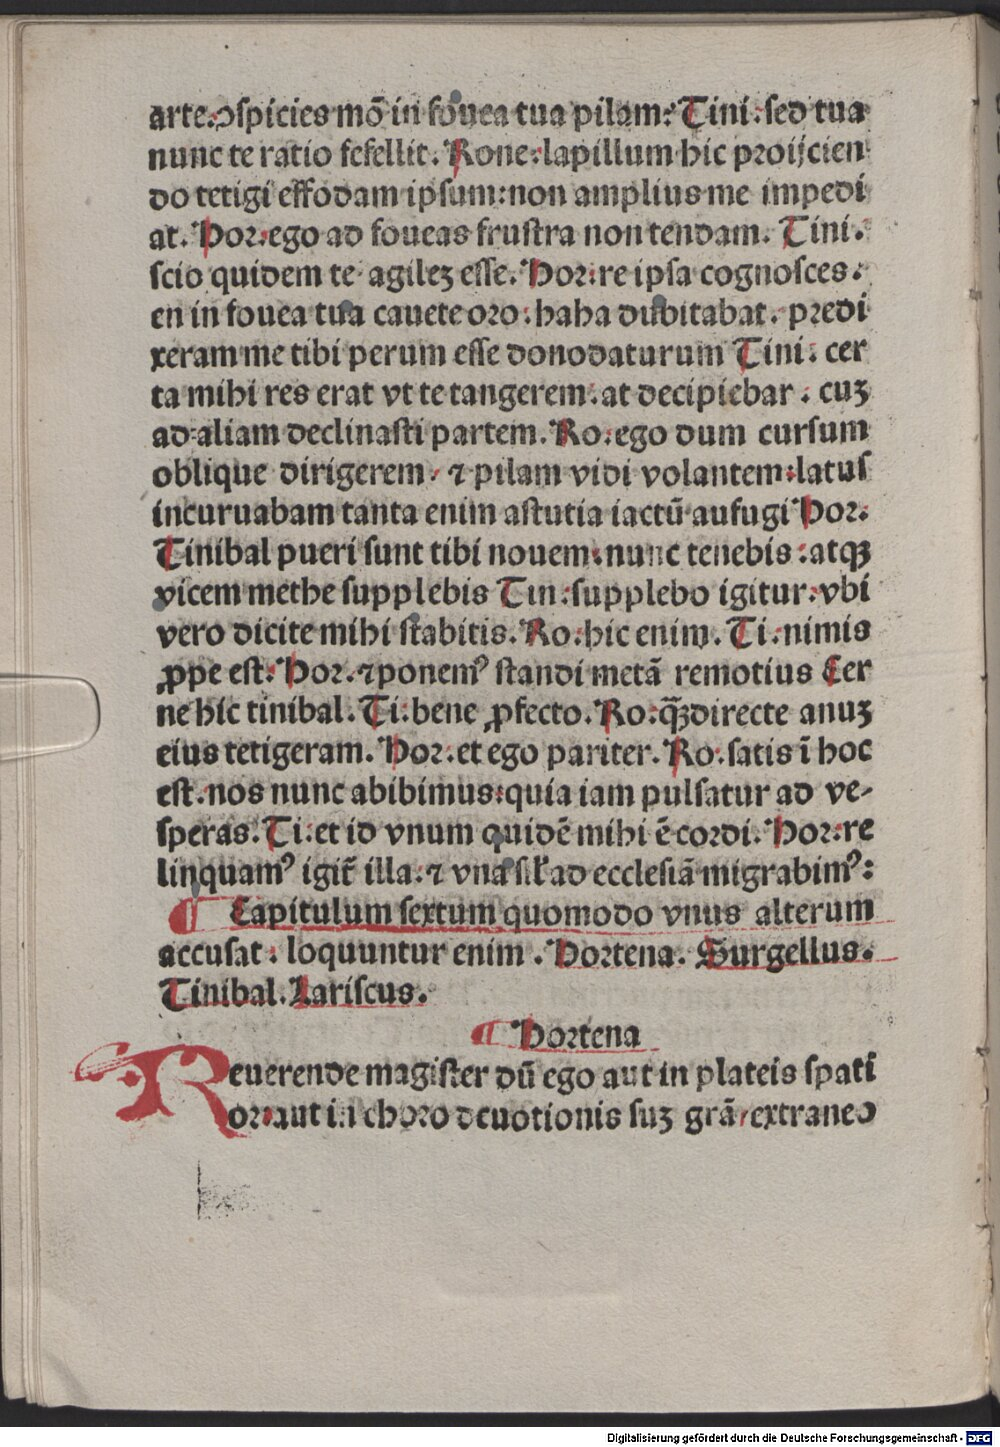 arte.ꝯspicies mō in fouea tua pilam: Tini.sed tua
nunc te ratio fefellit. Rone.lapillum hic proijcien
do tetigi effodam ipsum:non amplius me impedi
at. Hor.ego ad foueas frustra non tendam. Tini.
scio quidem te agileʒ esse. Hor.re ipsa cognosces.
en in fouea tua cauete oro.haha dubitabat. predi
xeram me tibi perum esse donodaturum Tini. cer
ta mihi res erat vt te tangerem.at decipiebar. cuʒ
ad aliam declinasti partem. Ro.ego dum cursum
oblique dirigerem ⁊ pilam vidi volantem.latus
incuruabam tanta enim astutia iactū aufugi Hor.
Tinibal pueri sunt tibi nouem.nunc tenebis.atqꝫ
vicem methe supplebis Tin.supplebo igitur.vbi
vero dicite mihi stabitis. Ro.hic enim. Ti.nimis
ꝓpe est. Hor.⁊ponemꝰ standi metā remotius Cer
ne hic tinibal. Ti.bene ꝓfecto. Ro.qꝫdirecte anuʒ
eius tetigeram. Hor.et ego pariter. Ro.satis ī hoc
est.nos nunc abibimus.quia iam pulsatur ad ve-
speras. Ti.et id vnum quidē mihi ē cordi. Hor.re
linquamꝰ igit̄ illa.⁊ vna sil̄ ad ecclesiā migrabimꝰ:
¶ Capitulum sextum quomodo vnus alterum
accusat. loquuntur enim. Hortena. Surgellus.
Tinibal. Lariscus.
¶ Hortena
Reuerende magister dū ego aut in plateis spati
or.aut in choro deuotionis suʒ grā extraneo
Digitalisierung gefördert durch die Deutsche Forschungsgemeinschaft - DFG